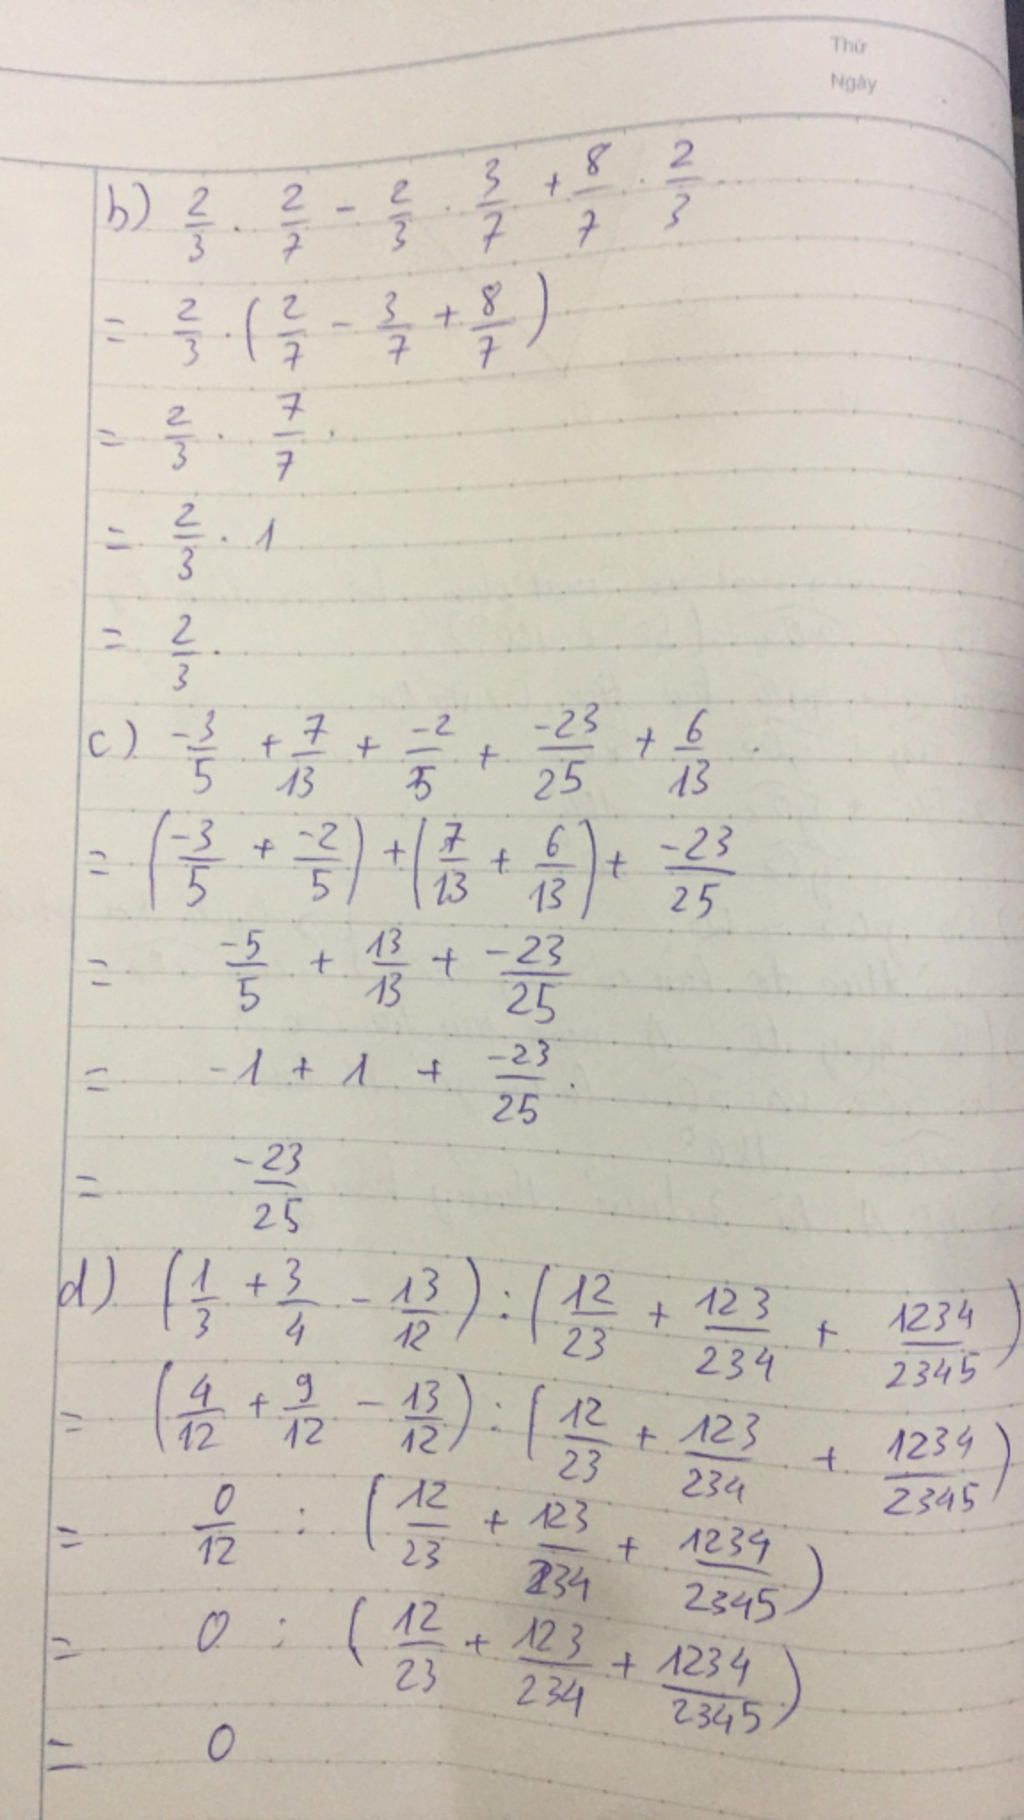 Thứ
Ngày
b) 2/3 . 2/7 - 2/3 . 3/7 + 8/7 . 2/3
= 2/3 . (2/7 - 3/7 + 8/7)
= 2/3 . 7/7 .
= 2/3 . 1
= 2/3 .
c) -3/5 + 7/13 + -2/5 + -23/25 + 6/13 .
= (-3/5 + -2/5) + (7/13 + 6/13) + -23/25
= -5/5 + 13/13 + -23/25
= -1 + 1 + -23/25 .
= -23/25
d) (1/3 + 3/4 - 13/12) : (12/23 + 123/234 + 1234/2345)
= (4/12 + 9/12 - 13/12) : (12/23 + 123/234 + 1234/2345)
= 0/12 : (12/23 + 123/234 + 1234/2345)
= 0 : (12/23 + 123/234 + 1234/2345)
= 0